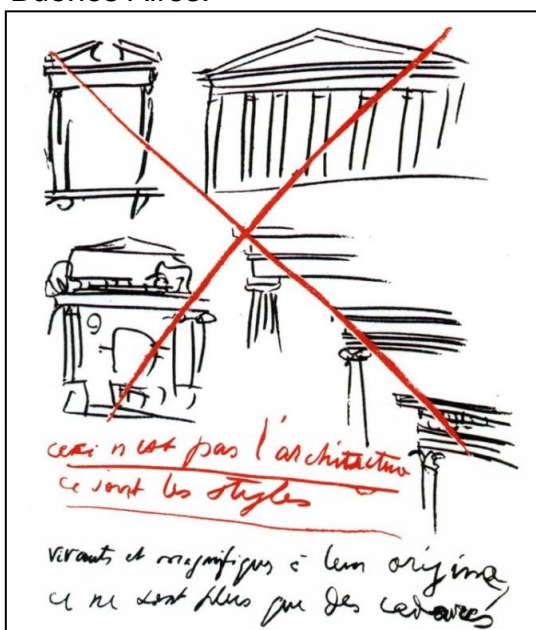 Buenos Aires.
ceci n'est pas l'architecture
ce sont les styles
vivants et magnifiques à leur origine,
ce ne sont plus que des cadavres